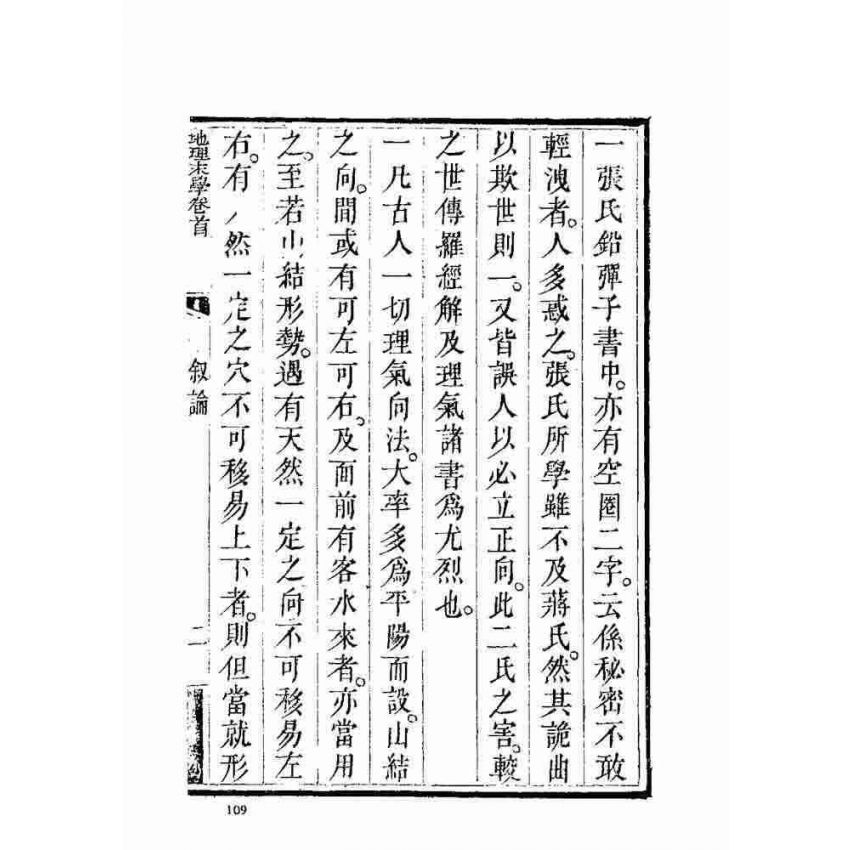 一張氏鉛彈子書中。亦有空圈二字。云係秘密不敢
輕洩者。人多惑之。張氏所學雖不及蔣氏。然其詭曲
以欺世則一。又皆誤人以必立正向。此二氏之害。較
之世傳羅經解及理氣諸書爲尤烈也。
一凡古人一切理氣向法。大率多爲平陽而設。山結
之向。間或有可左可右。及面前有客水來者。亦當用
之。至若山結形勢。遇有天然一定之向不可移易左
右。有然一定之穴不可移易上下者。則但當就形
地理末學卷首
叙論
二
109